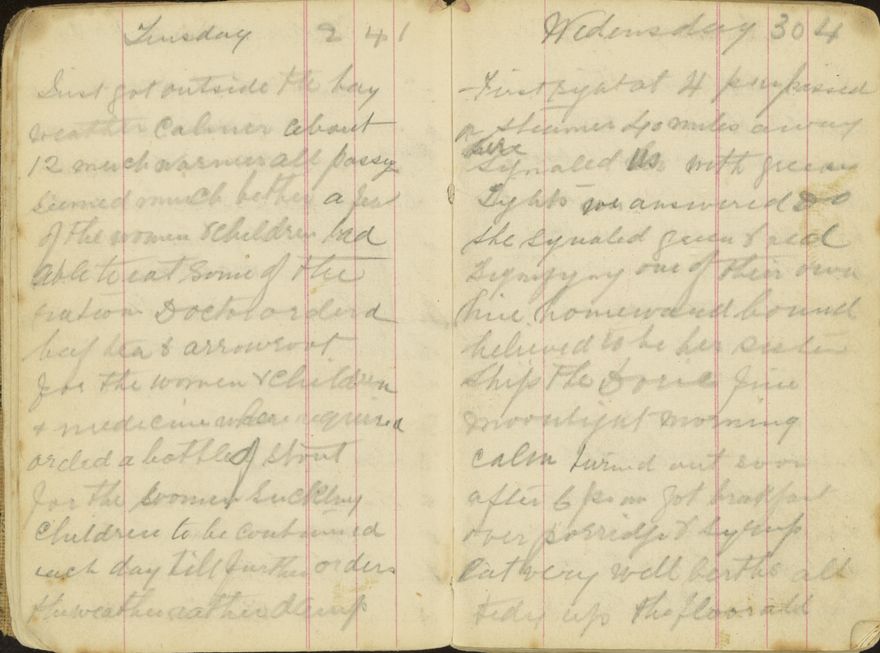 Tuesday 241
Just got outside the bay
weather calmer about
12 much warmer all passg
seemed much better a few
of the women & children had
able to eat some of the
ration Doctor orderd
beef tea & arrowroot
for the women & children
& medicine where required
orded a bottle of stout
for the women suckling
children to be continued
each day till further orders
the weather rather damp
Wedensday 304
First light at 4 passed
a steamer 40 miles away
here
synaled us with green
Lights we answered Do
she synaled green & red
one of their own
line homeward bound
believed to be her sister
ship the Doric fine
moonlight morning
calm turned out soon
after 6 got brakfast
over porridge & syrup
Eat very well berths all
tedy up the floor all